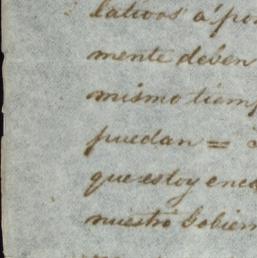 lativos á por
mente deben
mismo tiemp
puedan =
que estoy enca
nuestro Gobiern